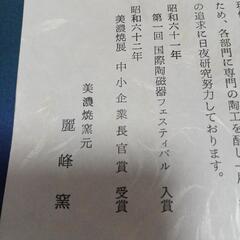 ため、各部門に専門の陶工を配し一層
の追求に日夜研究努力しております。
昭和六十一年
第一回 国際陶磁器フェスティバル 入賞
昭和六十二年
美濃焼展 中小企業長官賞 受賞
美濃焼窯元
麗峰窯